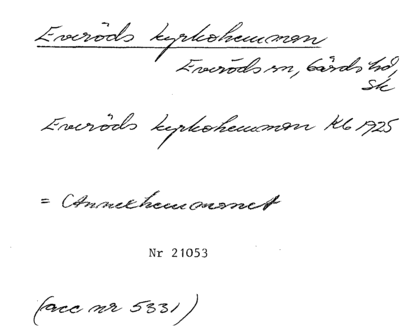 Everöds kyrkohemman
Everöds sn, Gärds hd,
Sk
Everöds kyrkohemman Kb 1925
= (Annexhemmanet
Nr 21053
(acc nr 5331)